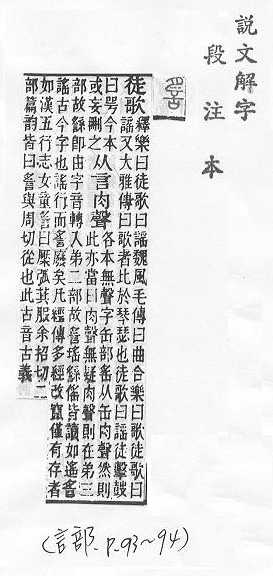 說文解字
段注本
䚻
徒歌釋樂曰徒歌曰謠魏風毛傳曰曲合樂曰歌徒歌曰
謠又大雅傳曰歌者比於琴瑟也徒歌曰謠徒擊鼓
曰咢今本
或妄刪之
从言肉聲
各本無聲字缶部䍃从缶肉聲然則
此亦當曰肉聲無疑肉聲則在弟三
部故繇卽由字音轉入弟二部故䚻瑤繇傜皆讀如遙䚻
謠古今字也謠行而䚻廢矣凡經傳多經改竄僅有存者
如漢五行志女童䚻曰檿弧其服余招切二
部篇韵皆曰䚻與周切從也此古音古義
(言部、P.93~94)